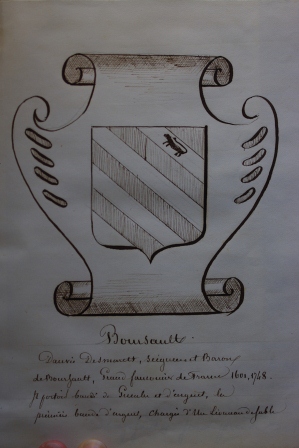 Boursault
Dauvet Desmarett, Seigneur et Baron
de Boursault, Grand fauconnier de France 1601, 1748.
Il portait bandé de Gueules et d'argent, la
première bande d'argent, chargée d'Un Lion de sable